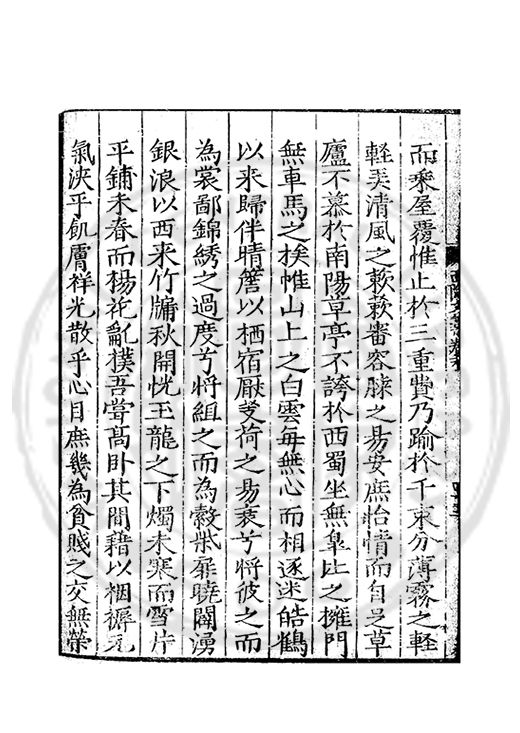 而乘屋覆惟止於三重費乃踰於千束分薄霧之輕
輕美清風之蔌蔌審容膝之易安庶怡情而自足草
廬不慕於南陽草亭不誇於西蜀坐無皋比之擁門
無車馬之挨惟山上之白雲每無心而相逐迷皓鶴
以来歸伴晴簷以栖宿厭芰荷之易衰兮將彼之而
為裳鄙錦綉之過度兮將組之而為縠柴扉曉闢湧
銀浪以西来竹牖秋開恍玉龍之下燭未寒而雪片
平鋪未春而楊花亂撲吾嘗高卧其間藉以裀褥元
氣浹乎飢膚祥光散乎心目庶幾為貧賤之交無榮